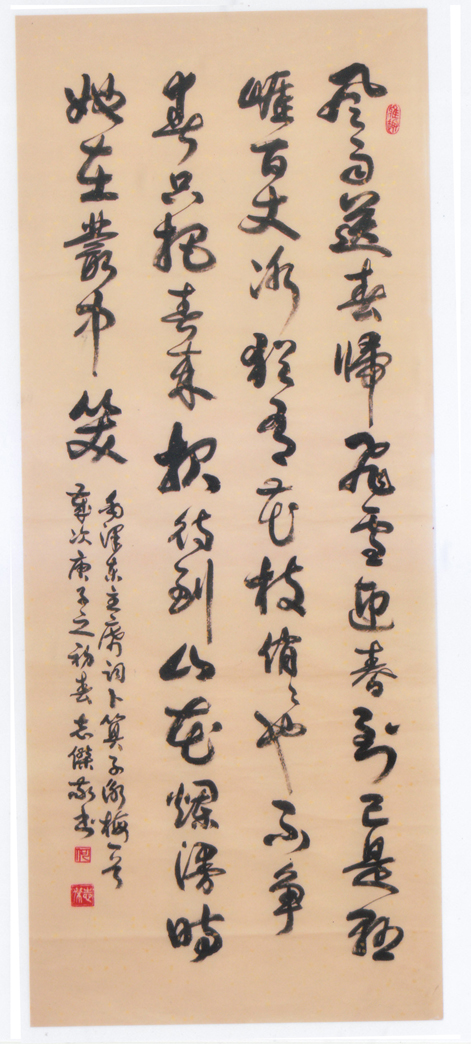 風雨送春歸飛雪迎春到已是懸
崖百丈冰猶有花枝俏々也不争
春只把春来报待到山花爛漫時
她在叢中笑
毛澤东主席词卜算子咏梅一首
歲次庚子之初春志傑敬书